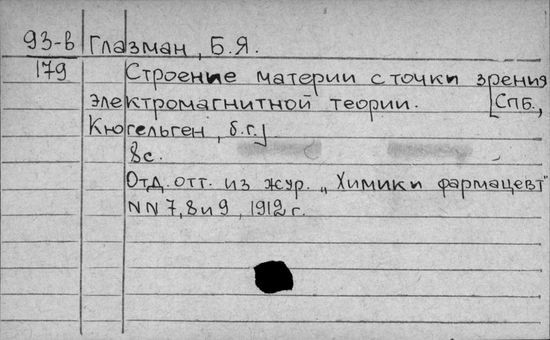 93-В Глазман, Б.Я.
179 Строение материи с точки зрения
электромагнитной теории. [СПБ.,
Кюгельген, б.г.]
8с.
Отд. отт. из жур. „Химик и фармацевт"
NN 7,8 и 9, 1912 г.